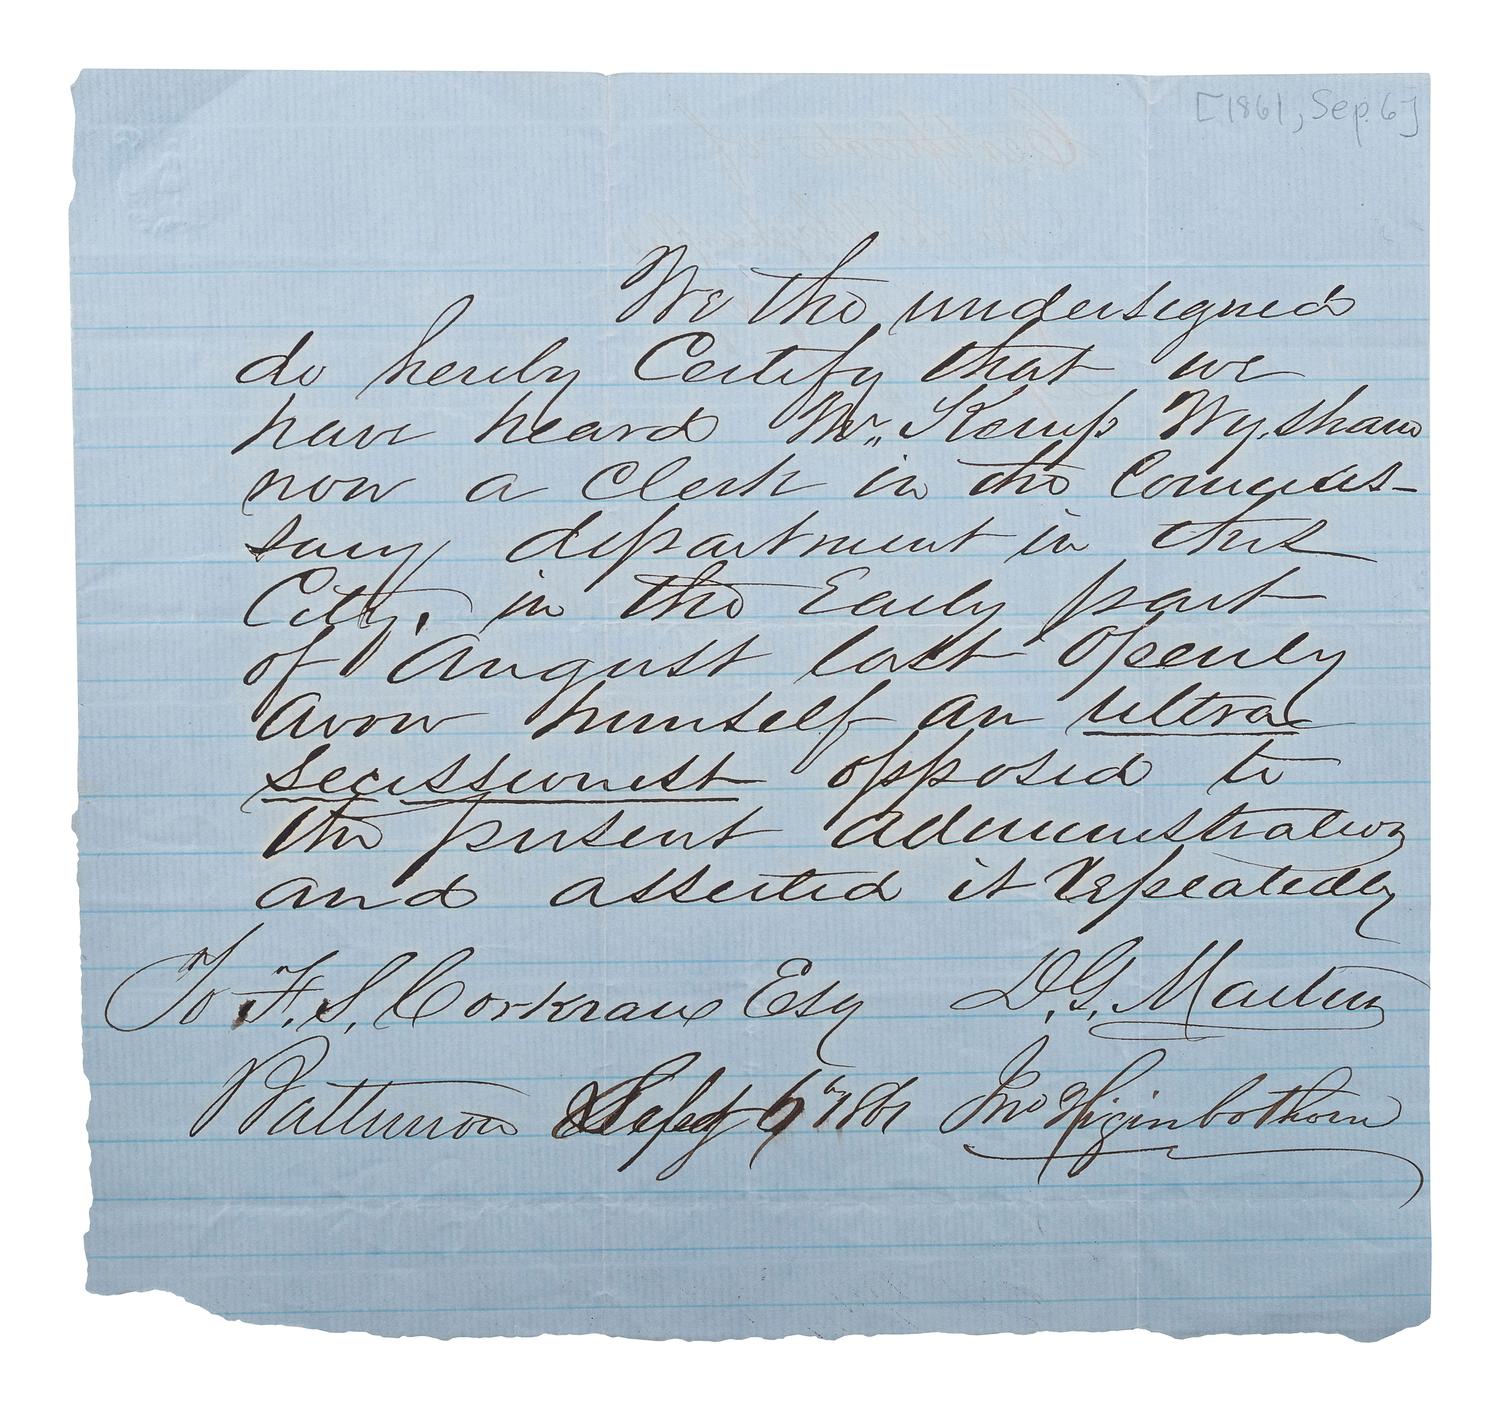 [1861, Sep. 6]
We the undersigned
do hereby Certify that we
have heard Mr. Kemp Wysham
now a Clerk in the Commis-
sary department in this
City, in the Early part
of August last Openly
Avow himself an ultra
secessionist opposed to
the present administration
and asserted it repeatedly
To F. S. Corkran Esq D. G. Martin
Baltimore Sept 6th 1861 Jno Higinbothom